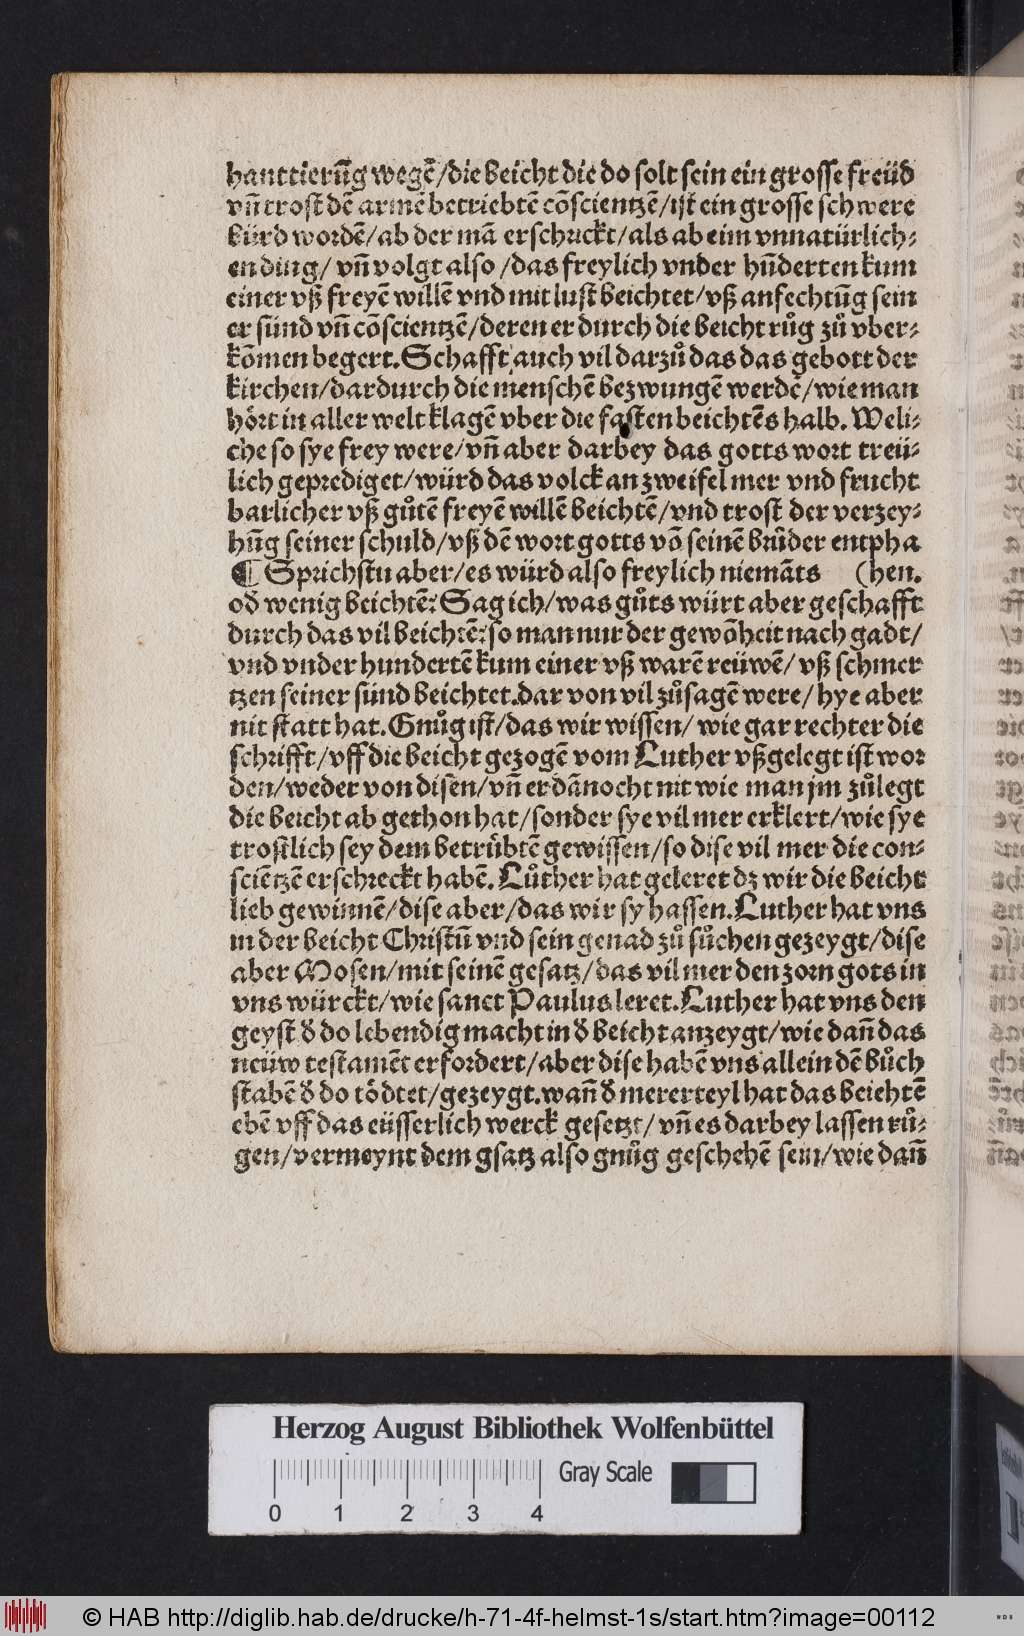 hanttierūg wegē/die beicht die do solt sein ein grosse freüd
vñ trost dē armē betriebtē cōscientzē/ist ein grosse schwere
bürd wordē/ab der mā erschrickt/als ab eim vnnatürlich-
en ding/ vñ volgt also /das freylich vnder hūderten kum
einer vß freyē willē vnd mit lust beichtet/vß anfechtūg sein
er sünd vñ cōscientzē/deren er durch die beicht růg zů vber-
kōmen begert. Schafft auch vil darzů das das gebott der
kirchen/dardurch die menschē bezwungē werdē/wie man
hört in aller welt klagē vber die fasten beichtēs halb. Weli-
che so sye frey were/vñ aber darbey das gotts wort treü-
lich geprediget/würd das volck an zweifel mer vnd frucht
barlicher vß gůtē freyē willē beichtē/vnd trost der verzey-
hūg seiner schuld/vß dē wort gotts vō seinē brůder entpha
¶ Sprichstu aber/es würd also freylich niemāts (hen.
oď wenig beichtē? Sag ich/was gůts würt aber geschafft
durch das vil beichtē? so man nur der gewōheit nach gadt/
vnd vnder hundertē kum einer vß warē reüwē/ vß schmer
tzen seiner sünd beichtet. dar von vil zůsagē were/hye aber
nit statt hat. Gnůg ist/das wir wissen/ wie gar rechter die
schrifft/vff die beicht gezogē vom Luther vßgelegt ist wor
den/weder von disen/vñ er dānocht nit wie man jm zůlegt
die beicht ab gethon hat/sonder sye vil mer erklert/wie sye
trostlich sey dem betrübtē gewissen/so dise vil mer die con-
sciētzē erschreckt habē. Luther hat geleret dz wir die beicht
lieb gewinnē/dise aber/das wir sy hassen. Luther hat vns
in der beicht Christū vnd sein genad zů sůchen gezeygt/dise
aber Mosen/mit seinē gesatz/das vil mer den zorn gots in
vns würckt/wie sanct Paulus leret. Luther hat vns den
geyst ď do lebendig macht in ď beicht anzeygt/wie dañ das
neüw testamēt erfordert/aber dise habē vns allein dē bůch
stabē ď do tödtet/gezeygt. wañ ď mererteyl hat das beichtē
ebē vff das eüsserlich werck gesetzt/ vñ es darbey lassen rů-
gen/vermeynt dem gsatz also gnůg geschehē sein/wie dañ
Herzog August Bibliothek Wolfenbüttel
Gray Scale
0 1 2 3 4
© HAB http://diglib.hab.de/drucke/h-71-4f-helmst-1s/start.htm?image=00112